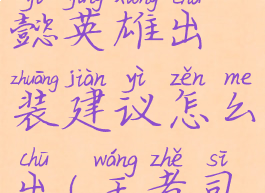 懿英雄出
zhuāng jiàn yì zěn me
装建议怎么
chū wáng zhě sī
出(王者司